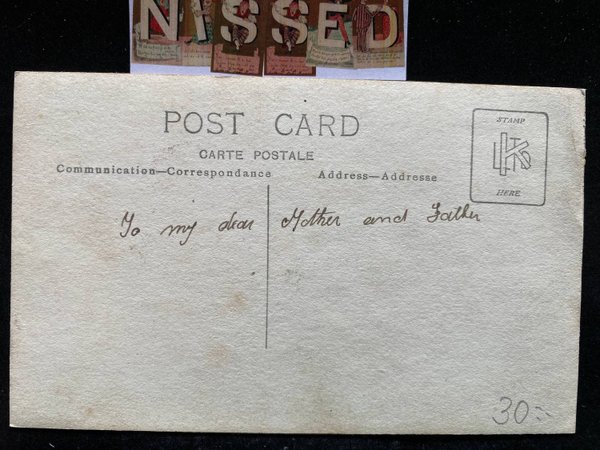 NISSED
POST CARD
CARTE POSTALE
Communication—Correspondance
Address—Addresse
STAMP
HERE
To my dear Mother and Father
30:-